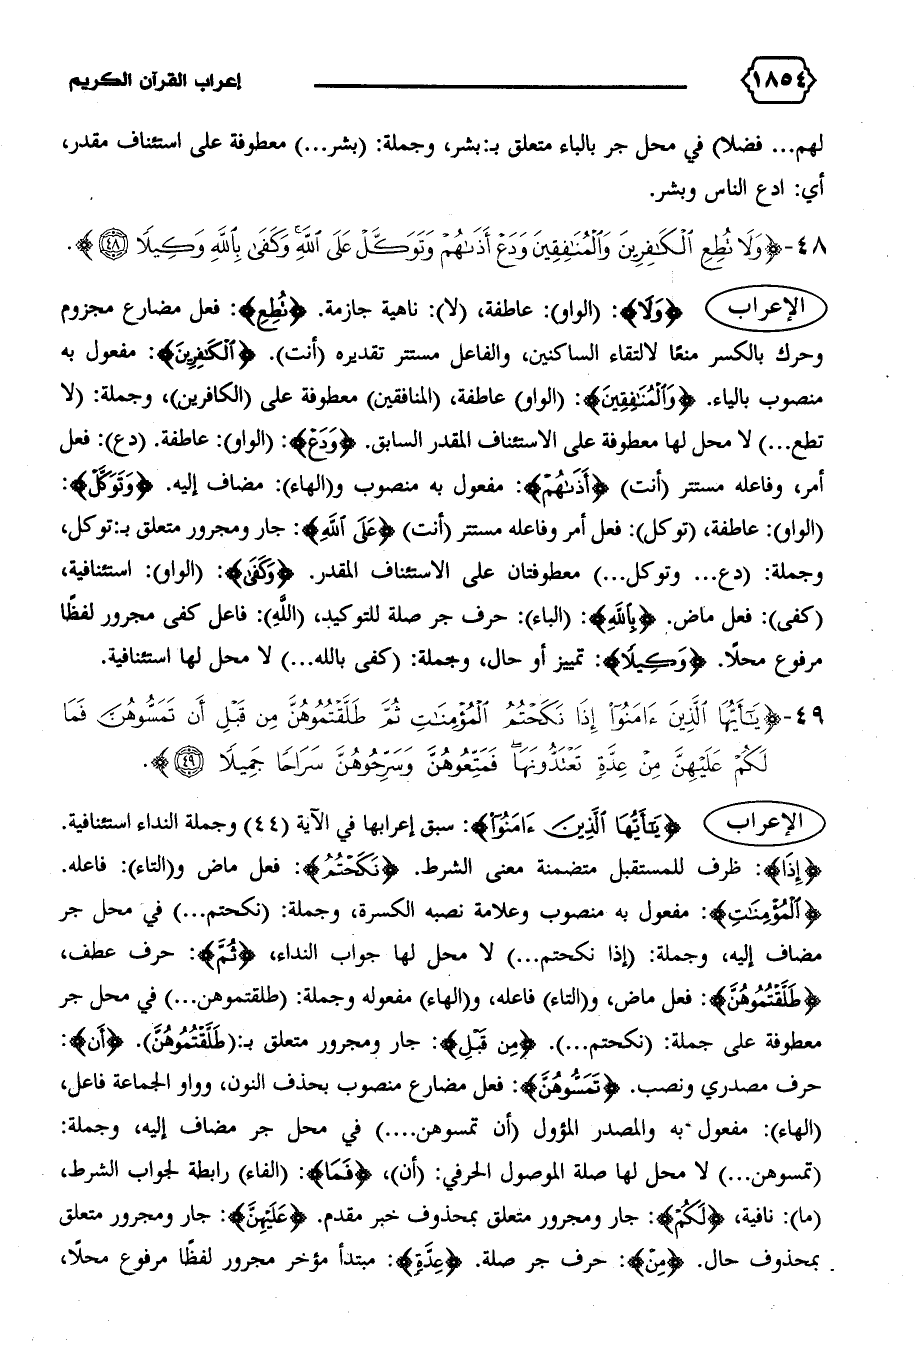 ١٨٥٤ إعراب القرآن الكريم
لهم... فضلا) في محل جر بالباء متعلق بـ:بشر، وجملة: (بشر...) معطوفة على استئناف مقدر،
أي: ادع الناس وبشر.
٤٨- ﴿وَلَا تُطِعِ ٱلْكَٰفِرِينَ وَٱلْمُنَٰفِقِينَ وَدَعْ أَذَىٰهُمْ وَتَوَكَّلْ عَلَى ٱللَّهِ ۚ وَكَفَىٰ بِٱللَّهِ وَكِيلًا ۝٤٨﴾.
الإعراب ﴿وَلَا﴾: (الواو): عاطفة، (لا): ناهية جازمة. ﴿تُطِعِ﴾: فعل مضارع مجزوم
وحرك بالكسر منعًا لالتقاء الساكنين، والفاعل مستتر تقديره (أنت). ﴿ٱلْكَٰفِرِينَ﴾: مفعول به
منصوب بالياء. ﴿وَٱلْمُنَٰفِقِينَ﴾: (الواو) عاطفة، (المنافقين) معطوفة على (الكافرين)، وجملة: (لا
تطع...) لا محل لها معطوفة على الاستئناف المقدر السابق. ﴿وَدَعْ﴾: (الواو): عاطفة. (دع): فعل
أمر، وفاعله مستتر (أنت) ﴿أَذَىٰهُمْ﴾: مفعول به منصوب و(الهاء): مضاف إليه. ﴿وَتَوَكَّلْ﴾:
(الواو): عاطفة، (توكل): فعل أمر وفاعله مستتر (أنت) ﴿عَلَى ٱللَّهِ﴾: جار ومجرور متعلق بـ:توكل،
وجملة: (دع... وتوكل...) معطوفتان على الاستئناف المقدر. ﴿وَكَفَىٰ﴾: (الواو): استئنافية،
(كفى): فعل ماض. ﴿بِٱللَّهِ﴾: (الباء): حرف جر صلة للتوكيد، (اللَّهِ): فاعل كفى مجرور لفظًا
مرفوع محلًا. ﴿وَكِيلًا﴾: تمييز أو حال، وجملة: (كفى بالله...) لا محل لها استئنافية.
٤٩- ﴿يَٰٓأَيُّهَا ٱلَّذِينَ ءَامَنُوٓا۟ إِذَا نَكَحْتُمُ ٱلْمُؤْمِنَٰتِ ثُمَّ طَلَّقْتُمُوهُنَّ مِن قَبْلِ أَن تَمَسُّوهُنَّ فَمَا
لَكُمْ عَلَيْهِنَّ مِنْ عِدَّةٍ تَعْتَدُّونَهَا ۖ فَمَتِّعُوهُنَّ وَسَرِّحُوهُنَّ سَرَاحًا جَمِيلًا ۝٤٩﴾.
الإعراب ﴿يَٰٓأَيُّهَا ٱلَّذِينَ ءَامَنُوٓا۟﴾: سبق إعرابها في الآية (٤٤) وجملة النداء استئنافية.
﴿إِذَا﴾: ظرف للمستقبل متضمنة معنى الشرط. ﴿نَكَحْتُمُ﴾: فعل ماض و(التاء): فاعله.
﴿ٱلْمُؤْمِنَٰتِ﴾: مفعول به منصوب وعلامة نصبه الكسرة، وجملة: (نكحتم...) في محل جر
مضاف إليه، وجملة: (إذا نكحتم...) لا محل لها جواب النداء، ﴿ثُمَّ﴾: حرف عطف،
﴿طَلَّقْتُمُوهُنَّ﴾: فعل ماض، و(التاء) فاعله، و(الهاء) مفعوله وجملة: (طلقتموهن...) في محل جر
معطوفة على جملة: (نكحتم...). ﴿مِن قَبْلِ﴾: جار ومجرور متعلق بـ:(طَلَّقْتُمُوهُنَّ). ﴿أَن﴾:
حرف مصدري ونصب. ﴿تَمَسُّوهُنَّ﴾: فعل مضارع منصوب بحذف النون، وواو الجماعة فاعل،
(الهاء): مفعول به والمصدر المؤول (أن تمسوهن....) في محل جر مضاف إليه، وجملة:
(تمسوهن...) لا محل لها صلة الموصول الحرفي: (أن)، ﴿فَمَا﴾: (الفاء) رابطة لجواب الشرط،
(ما): نافية، ﴿لَكُمْ﴾: جار ومجرور متعلق بمحذوف خبر مقدم. ﴿عَلَيْهِنَّ﴾: جار ومجرور متعلق
بمحذوف حال. ﴿مِنْ﴾: حرف جر صلة. ﴿عِدَّةٍ﴾: مبتدأ مؤخر مجرور لفظًا مرفوع محلًا،